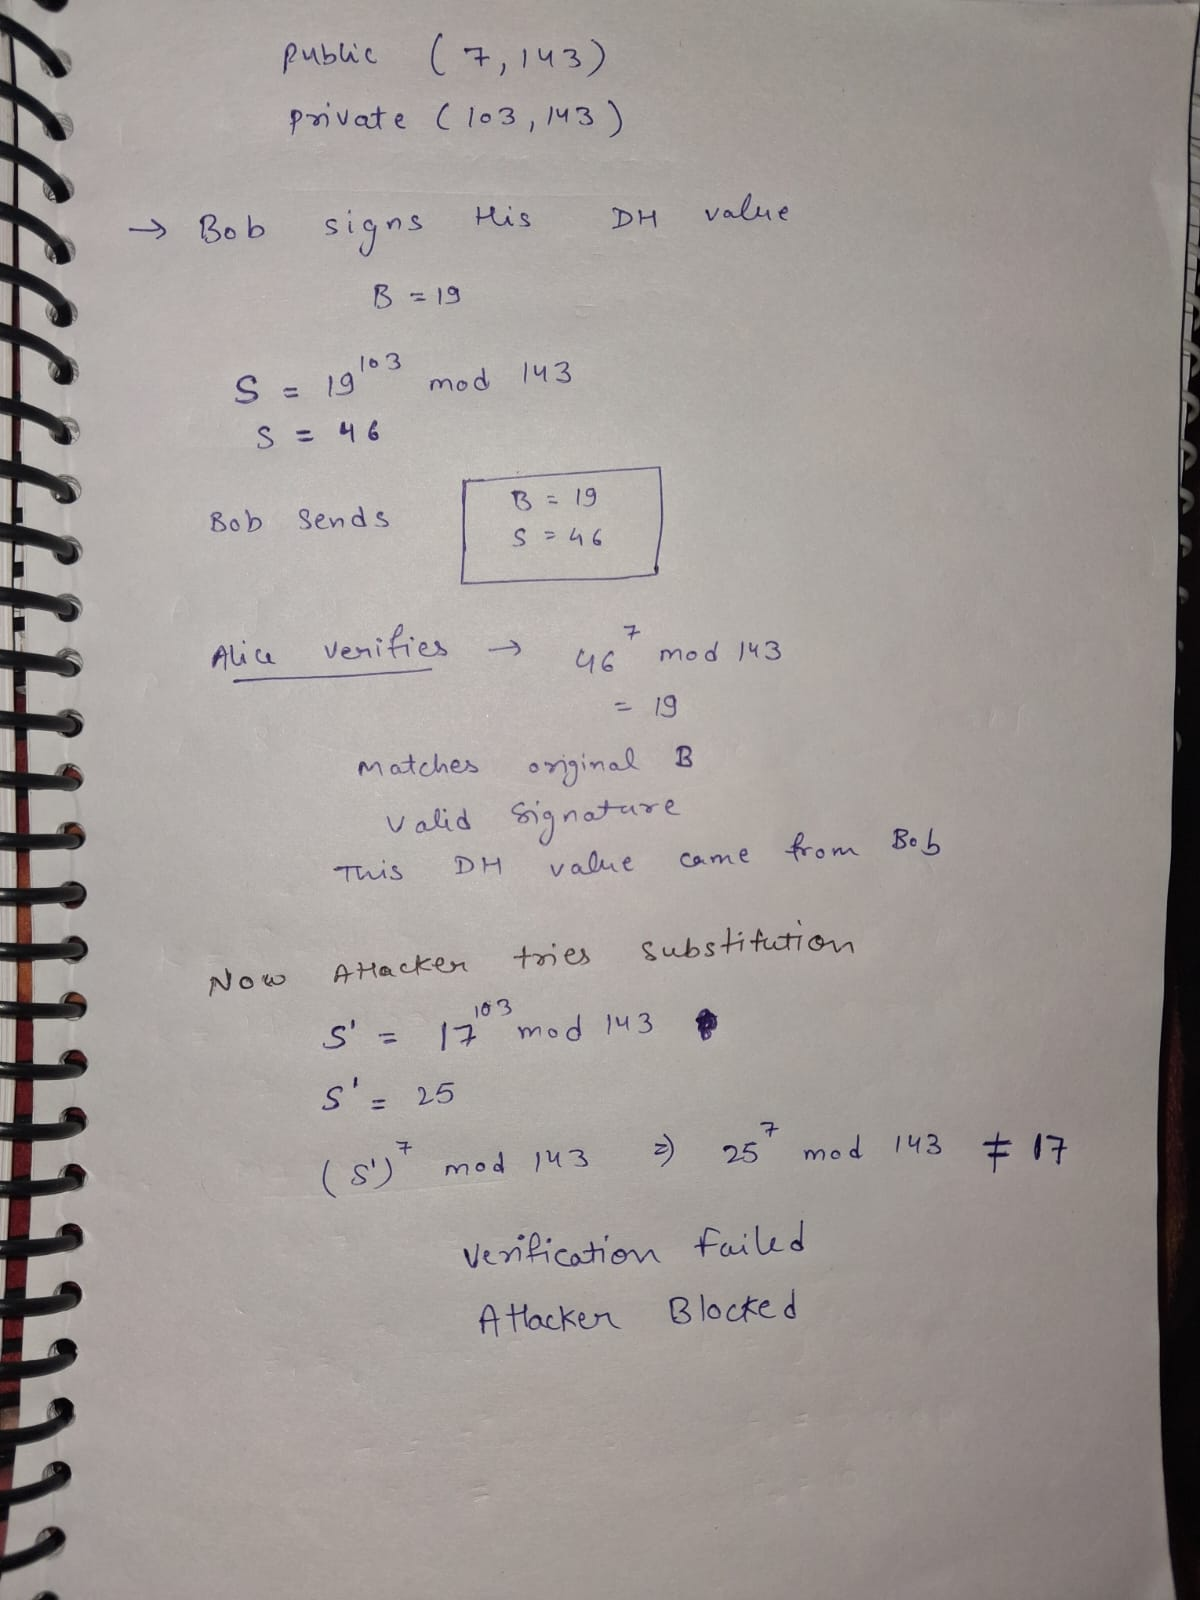 Public (7, 143)
Private (103, 143)
→ Bob signs His DH value
B = 19
S = 19^103 mod 143
S = 46
Bob Sends
B = 19
S = 46
Alice verifies → 46^7 mod 143
= 19
Matches original B
Valid Signature
This DH value came from Bob
Now Attacker tries substitution
S' = 17^103 mod 143
S' = 25
(S')^7 mod 143 ⇒ 25^7 mod 143 ≠ 17
Verification Failed
Attacker Blocked